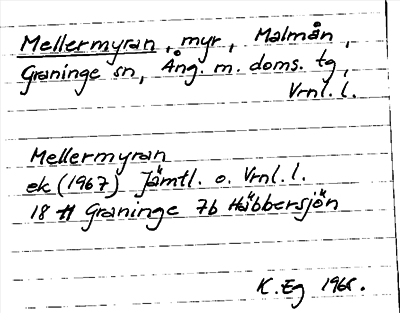 Mellermyran, myr, Malmån,
Graninge sn, Ång. m. doms. tg,
Vrnl. l.
Mellermyran
ek (1967) Jämtl. o. Vrnl. l.
18 H Graninge 7b Häbbersjön
K. Eg